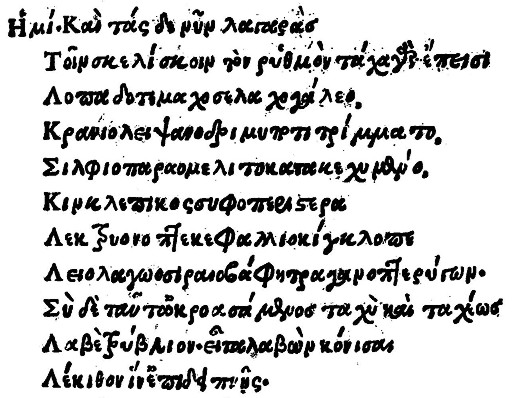 Ἡμί. Καὶ τάς δε νῦν λαπαρὰσ
Τοῖν σκελίσκοιν τὸν ῥυθμὸν τάχα γὰρ ἔπεισι
Λοπαδοτεμαχοσελαχογάλεο.
Κρανιολειψανοδριμυποτιτρίμματο.
Σιλφιοπαραομελιτοκατακεχυμένο.
Κιχκλεπικοσσυφοπεριστερα
Λεκτρυονοπτεκεφαλλιοκίγκλοπε
Λειολαγωοσιραιοβάφητραγανοπτερύγων.
Σὺ δὲ ταῦτ' ἀκροασάμενος ταχὺ καὶ ταχέως
Λαβὲ τρύβλιον. εἶτα λαβὼν κόνισαι
Λέκιθον ἵν' ἐπιδειπνῇς.